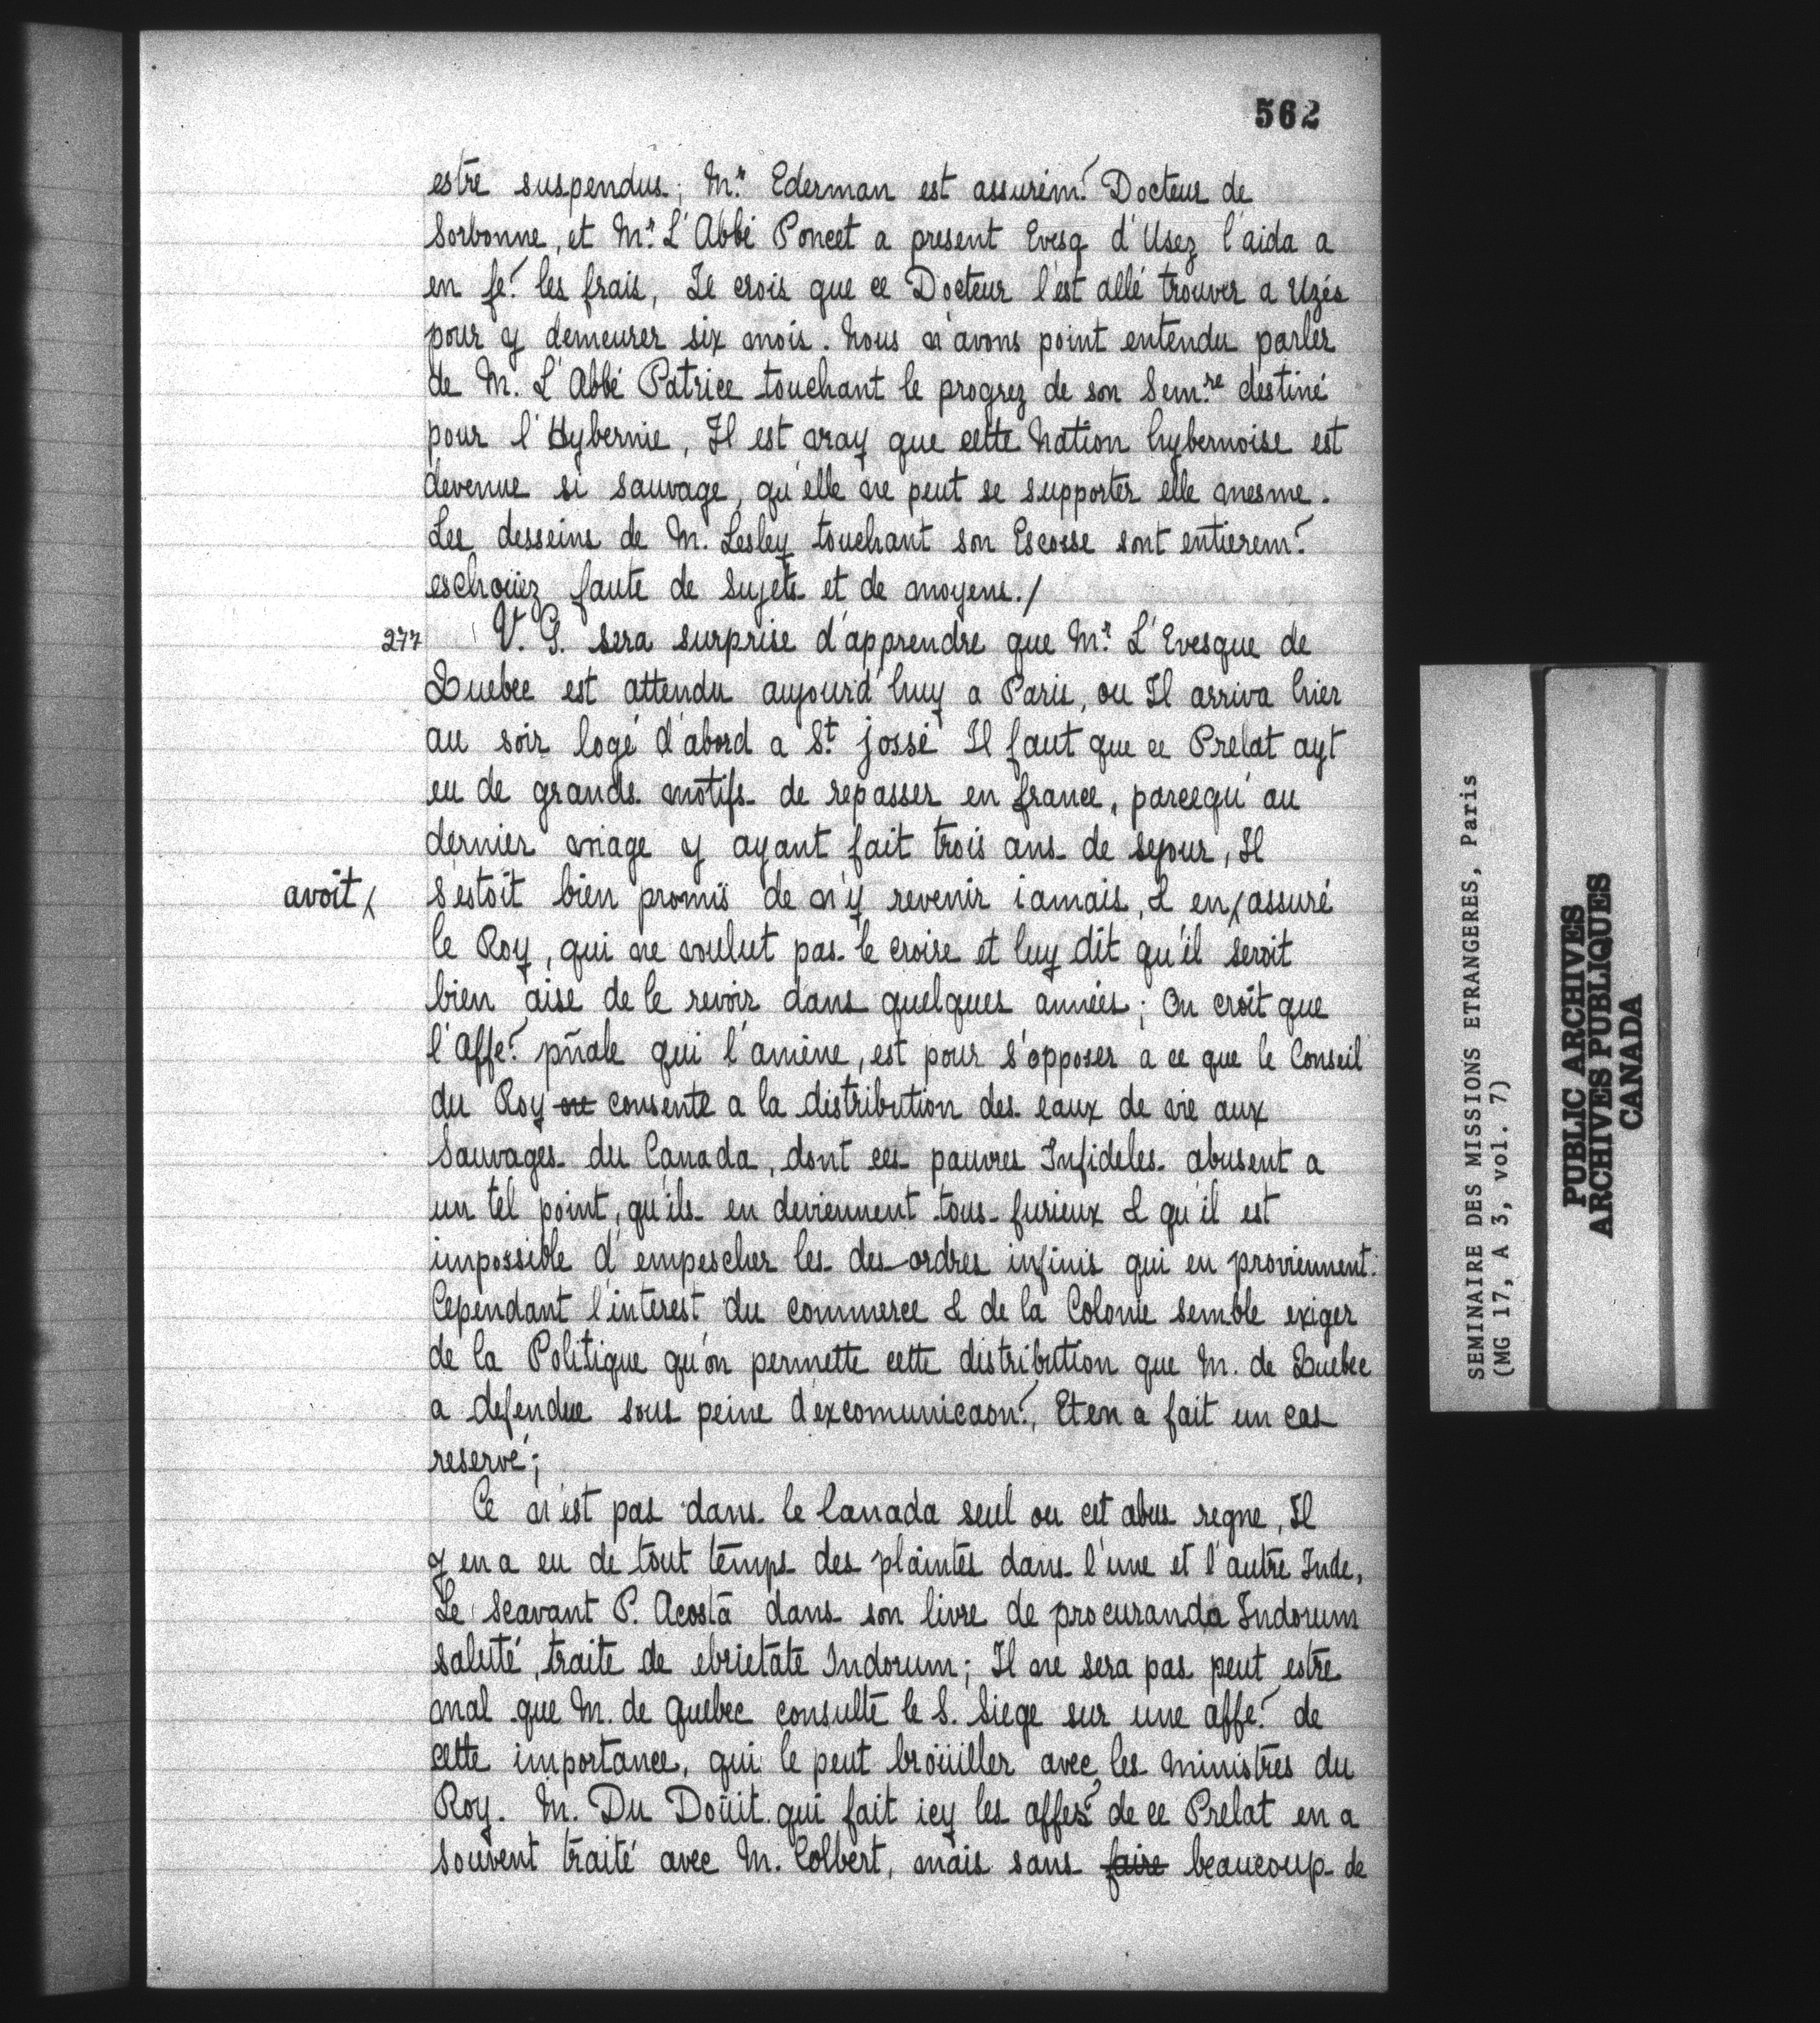 562
estre suspendus; Mr. Ederman est assurémt. Docteur de
Sorbonne, et Mr. L'Abbé Poncet a present Evesq d'Usez l'aida a
en fe. les frais, Je crois que ce Docteur l'est allé trouver a Uzés
pour y demeurer six mois. Nous n'avons point entendu parler
de M. L'Abbé Patrice touchant le progrez de son Sem.re destiné
pour l'Hybernie, Il est vray que cette Nation hybernoise est
devenue si sauvage, qu'elle ne peut se supporter elle mesme.
Les desseins de M. Lesley touchant son Escosse sont entierem.t
eschoüez faute de Sujets et de moyens./
277 V. G. sera surprise d'apprendre que Mr. L'Evesque de
Quebec est attendu aujourd'huy a Paris, ou Il arriva hier
au soir logé d'abord a St. josse Il faut que ce Prelat ayt
eu de grands motifs de repasser en france, parcequ'au
dernier voiage y ayant fait trois ans de sejour, Il
avoit/ s'estoit bien promis de n'y revenir iamais, & en/assuré
le Roy, qui ne voulut pas le croire et luy dit qu'il seroit
bien aise de le revoir dans quelques années; On croit que
l'Affe. pñale qui l'amène, est pour s'opposer a ce que le Conseil
du Roy ne consente a la distribution des eaux de vie aux
Sauvages du Canada, dont ces pauvres Infideles abusent a
un tel point, qu'ils en deviennent tous furieux & qu'il est
impossible d'empescher les des-ordres infinis qui en proviennent:
Cependant l'interest du commerce & de la Colonie semble exiger
de la Politique qu'on permette cette distribution que M. de Quebec
a defendue sous peine d'excomunicaon., Et en a fait un cas
reservé;
Ce n'est pas dans le Canada seul ou cet abus regne, Il
y en a eu de tout temps des plaintes dans l'une et l'autre Inde,
Le Scavant P. Acosta dans son livre de procuranda Indorum
saluté, traite de ebrietate Indorum; Il ne sera pas peut estre
mal que M. de Quebec consulte le S. Siege sur une affe. de
cette importance, qui le peut broüiller avec les ministres du
Roy. M. Du Doüit qui fait icy les affes. de ce Prelat en a
souvent traité avec M. Colbert, mais sans faire beaucoup de
SEMINAIRE DES MISSIONS ETRANGERES, Paris
(MG 17, A 3, vol. 7)
PUBLIC ARCHIVES
ARCHIVES PUBLIQUES
CANADA